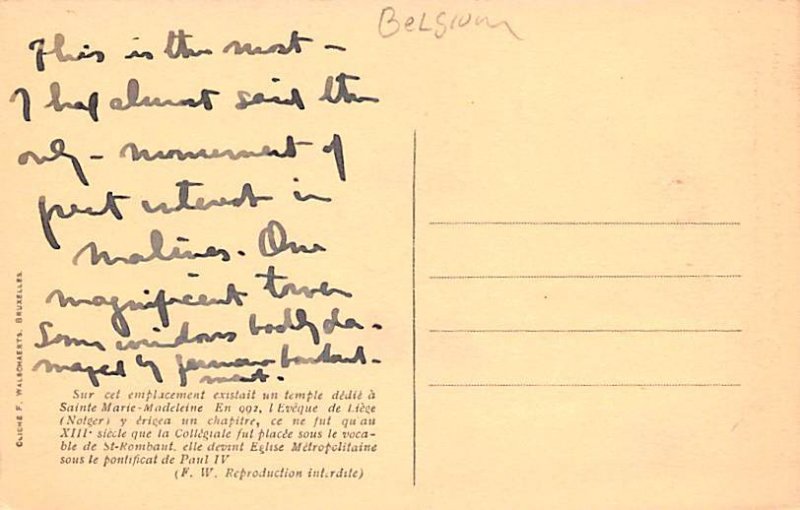 Belgium
This is the most —
I had almost said the
only — monument of
great interest in
Malines. One
magnificent tower
Some windows badly da-
maged by german bombard-
ment.
Sur cet emplacement existait un temple dédié à
Sainte Marie-Madeleine En 992, l'Evêque de Liège
(Notger) y érigea un chapitre, ce ne fut qu'au
XIIIe siècle que la Collégiale fut placée sous le voca-
ble de St-Rombaut, elle devint Eglise Métropolitaine
sous le pontificat de Paul IV
(F. W. Reproduction interdite)
CLICHÉ F. WALSCHAERTS, BRUXELLES.